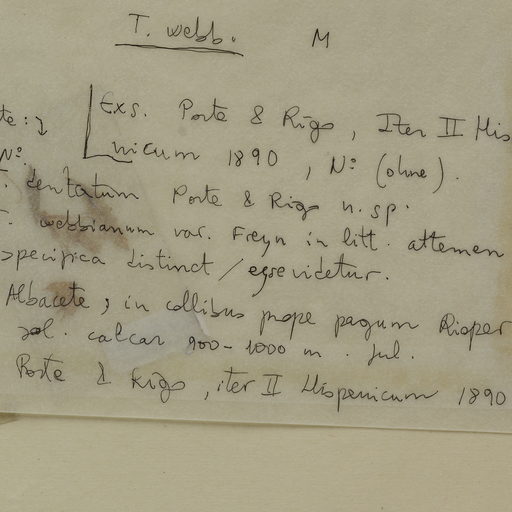 T. webb. M
te: Exs. Porte & Rigo, Iter II His
Nº: nicum 1890, Nº (ohne).
T. dentatum Porte & Rigo n. sp.
T. webbianum var. Freyn in litt. attamen
specifica distinct / esse videtur.
Albacete, in collibus prope pagum Rioper
sol. calcar 900-1000 m. Jul.
Porte & Rigo, iter II Hispanicum 1890